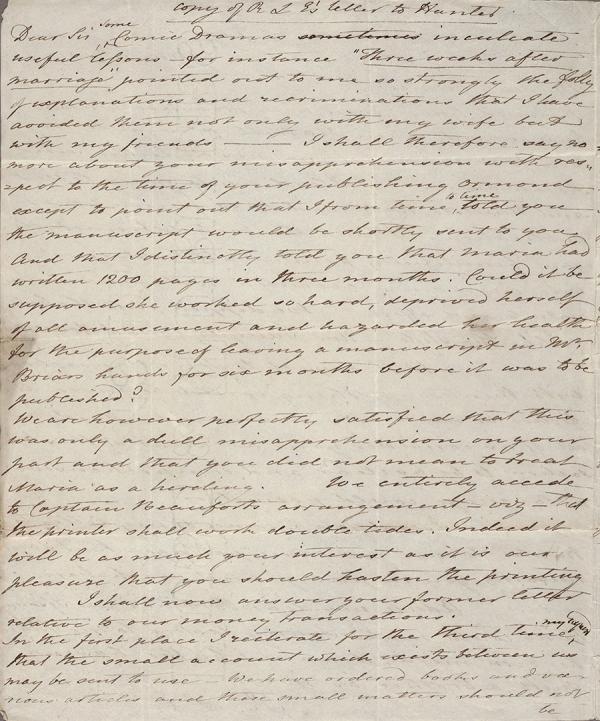 copy of R L E's letter to Hunter
Dear Sir some Comic Dramas sometimes inculcate
useful lessons - for instance "Three weeks after
marriage" pointed out to me so strongly the folly
of explanations and recriminations that I have
avoided them not only with my wife but
with my friends —— I shall therefore say no
more about your misapprehension with res-
=pect to the time of your publishing Ormond
except to point out that I from time to time told you
the manuscript would be shortly sent to you
And that I distinctly told you that Maria had
written 1200 pages in three months. Could it be
supposed she worked so hard, deprived herself
of all amusement and hazarded her health
for the purpose of leaving a manuscript in Mr.
Briars hands for six months before it was to be
published?
We are however perfectly satisfied that this
was only a dull misapprehension on your
part and that you did not mean to treat
Maria as a hireling. We entirely accede
to Captain Beauforts arrangement - viz - that
the printer shall work double tides. Indeed it
will be as much your interest as it is our
pleasure that you should hasten the printing
I shall now answer your former letter
relative to our money transactions.
In the first place I reiterate for the third time my
that the small account which exists between us
may be sent to use - We have ordered books and va=
rious articles and these small matters should not
be